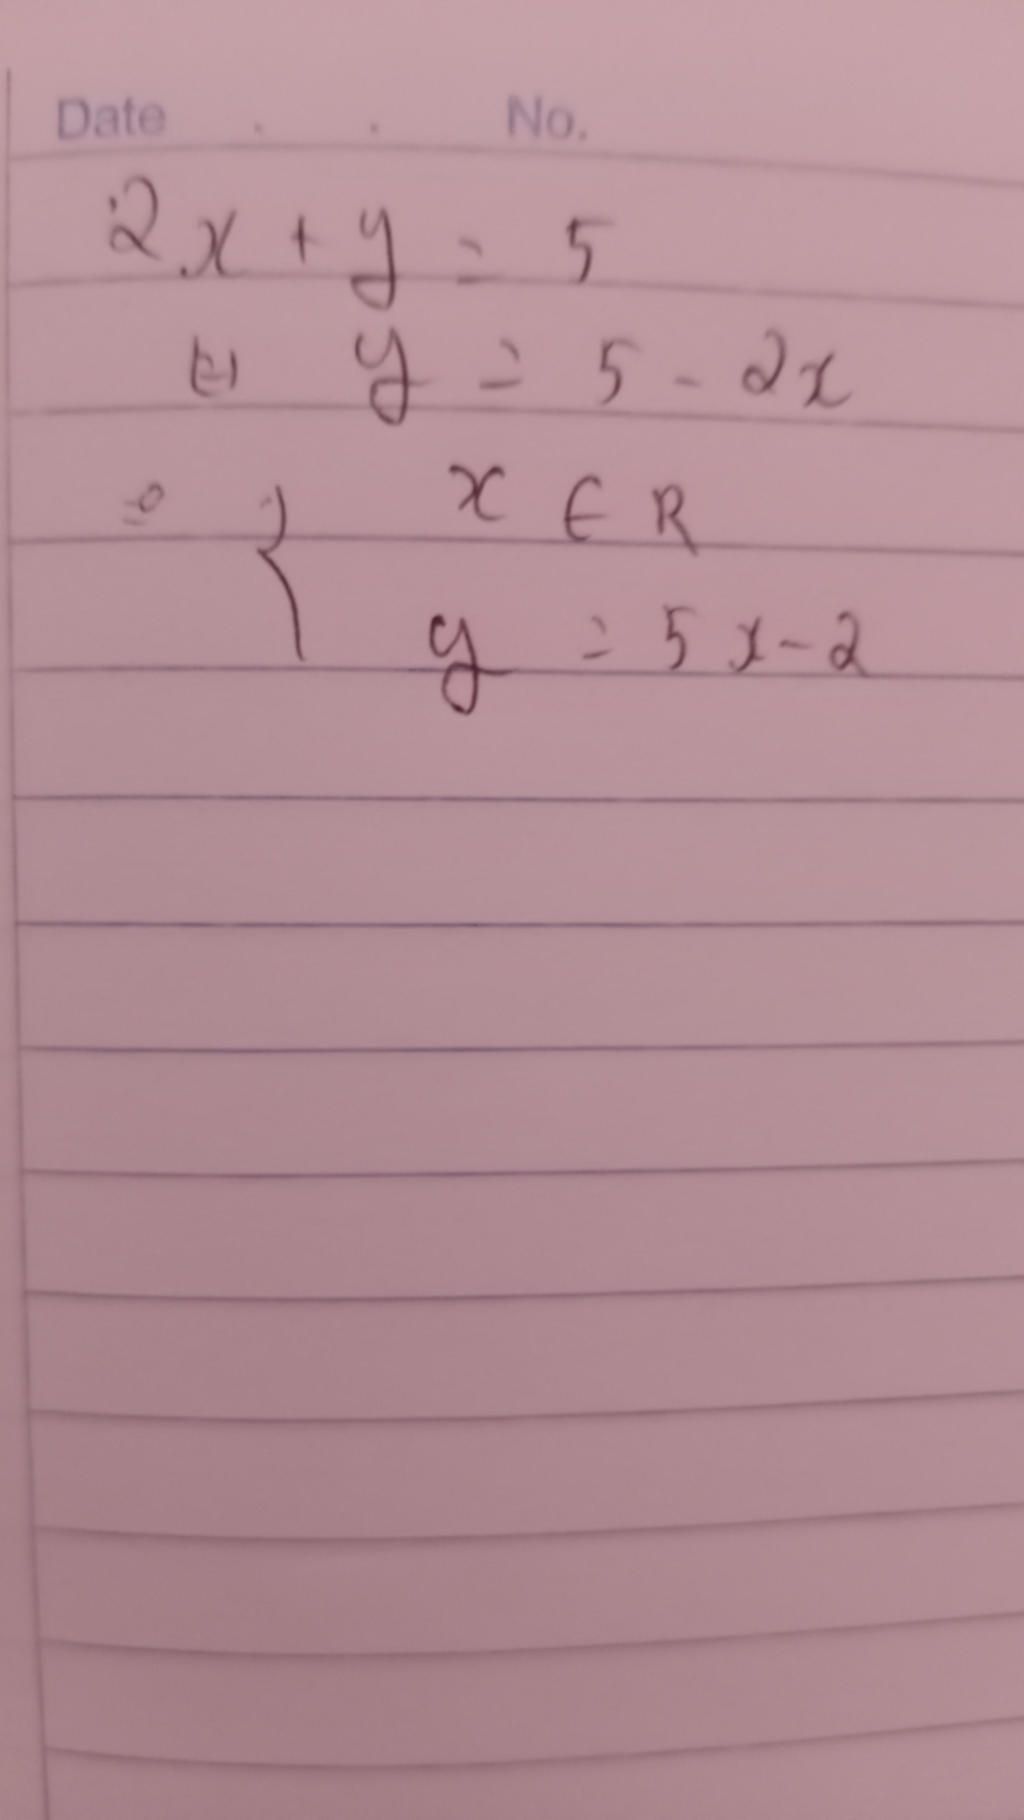 Date . . No.
2x + y = 5
⇔ y = 5 - 2x
⇒ { x ∈ R
y = 5x - 2